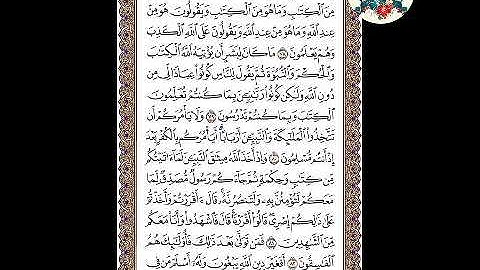 مِنَ ٱلْكِتَٰبِ وَمَا هُوَ مِنَ ٱلْكِتَٰبِ وَيَقُولُونَ هُوَ مِنْ
عِندِ ٱللَّهِ وَمَا هُوَ مِنْ عِندِ ٱللَّهِ وَيَقُولُونَ عَلَى ٱللَّهِ ٱلْكَذِبَ
وَهُمْ يَعْلَمُونَ ٧٨ مَا كَانَ لِبَشَرٍ أَن يُؤْتِيَهُ ٱللَّهُ ٱلْكِتَٰبَ
وَٱلْحُكْمَ وَٱلنُّبُوَّةَ ثُمَّ يَقُولَ لِلنَّاسِ كُونُوا۟ عِبَادًا لِّى مِن
دُونِ ٱللَّهِ وَلَٰكِن كُونُوا۟ رَبَّٰنِيِّۦنَ بِمَا كُنتُمْ تُعَلِّمُونَ
ٱلْكِتَٰبَ وَبِمَا كُنتُمْ تَدْرُسُونَ ٧٩ وَلَا يَأْمُرَكُمْ أَن
تَتَّخِذُوا۟ ٱلْمَلَٰٓئِكَةَ وَٱلنَّبِيِّۦنَ أَرْبَابًا أَيَأْمُرُكُم بِٱلْكُفْرِ بَعْدَ
إِذْ أَنتُم مُّسْلِمُونَ ٨٠ وَإِذْ أَخَذَ ٱللَّهُ مِيثَٰقَ ٱلنَّبِيِّۦنَ لَمَآ ءَاتَيْتُكُم
مِّن كِتَٰبٍ وَحِكْمَةٍ ثُمَّ جَآءَكُمْ رَسُولٌ مُّصَدِّقٌ لِّمَا
مَعَكُمْ لَتُؤْمِنُنَّ بِهِۦ وَلَتَنصُرُنَّهُۥ قَالَ ءَأَقْرَرْتُمْ وَأَخَذْتُمْ
عَلَىٰ ذَٰلِكُمْ إِصْرِى قَالُوٓا۟ أَقْرَرْنَا قَالَ فَٱشْهَدُوا۟ وَأَنَا۠ مَعَكُم
مِّنَ ٱلشَّٰهِدِينَ ٨١ فَمَن تَوَلَّىٰ بَعْدَ ذَٰلِكَ فَأُو۟لَٰٓئِكَ هُمُ
ٱلْفَٰسِقُونَ ٨٢ أَفَغَيْرَ دِينِ ٱللَّهِ يَبْغُونَ وَلَهُۥٓ أَسْلَمَ مَن فِى